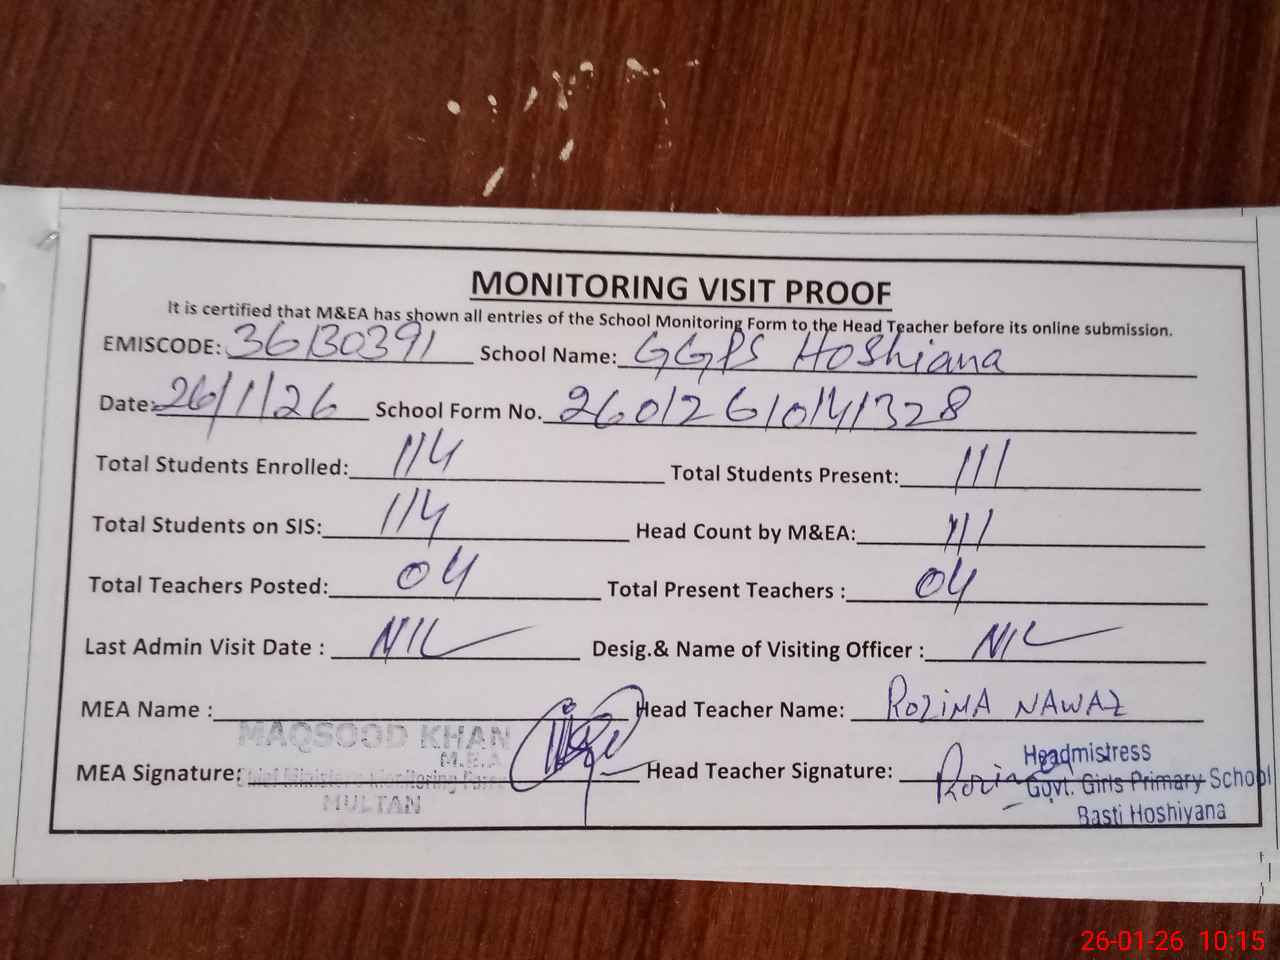 MONITORING VISIT PROOF
It is certified that M&EA has shown all entries of the School Monitoring Form to the Head Teacher before its online submission.
EMISCODE: 36130391 School Name: GGPS Hoshiana
Date: 26/1/26 School Form No. 26012610141328
Total Students Enrolled: 114 Total Students Present: 111
Total Students on SIS: 114 Head Count by M&EA: 111
Total Teachers Posted: 04 Total Present Teachers : 04
Last Admin Visit Date : NIL Desig.& Name of Visiting Officer : NIL
MEA Name : Head Teacher Name: ROZINA NAWAZ
MAQSOOD KHAN
M.E.A
MEA Signature: Chief Minister's Monitoring Force Head Teacher Signature: Rozina
MULTAN
Headmistress
Govt. Girls Primary School
Basti Hoshiyana
26-01-26 10:15